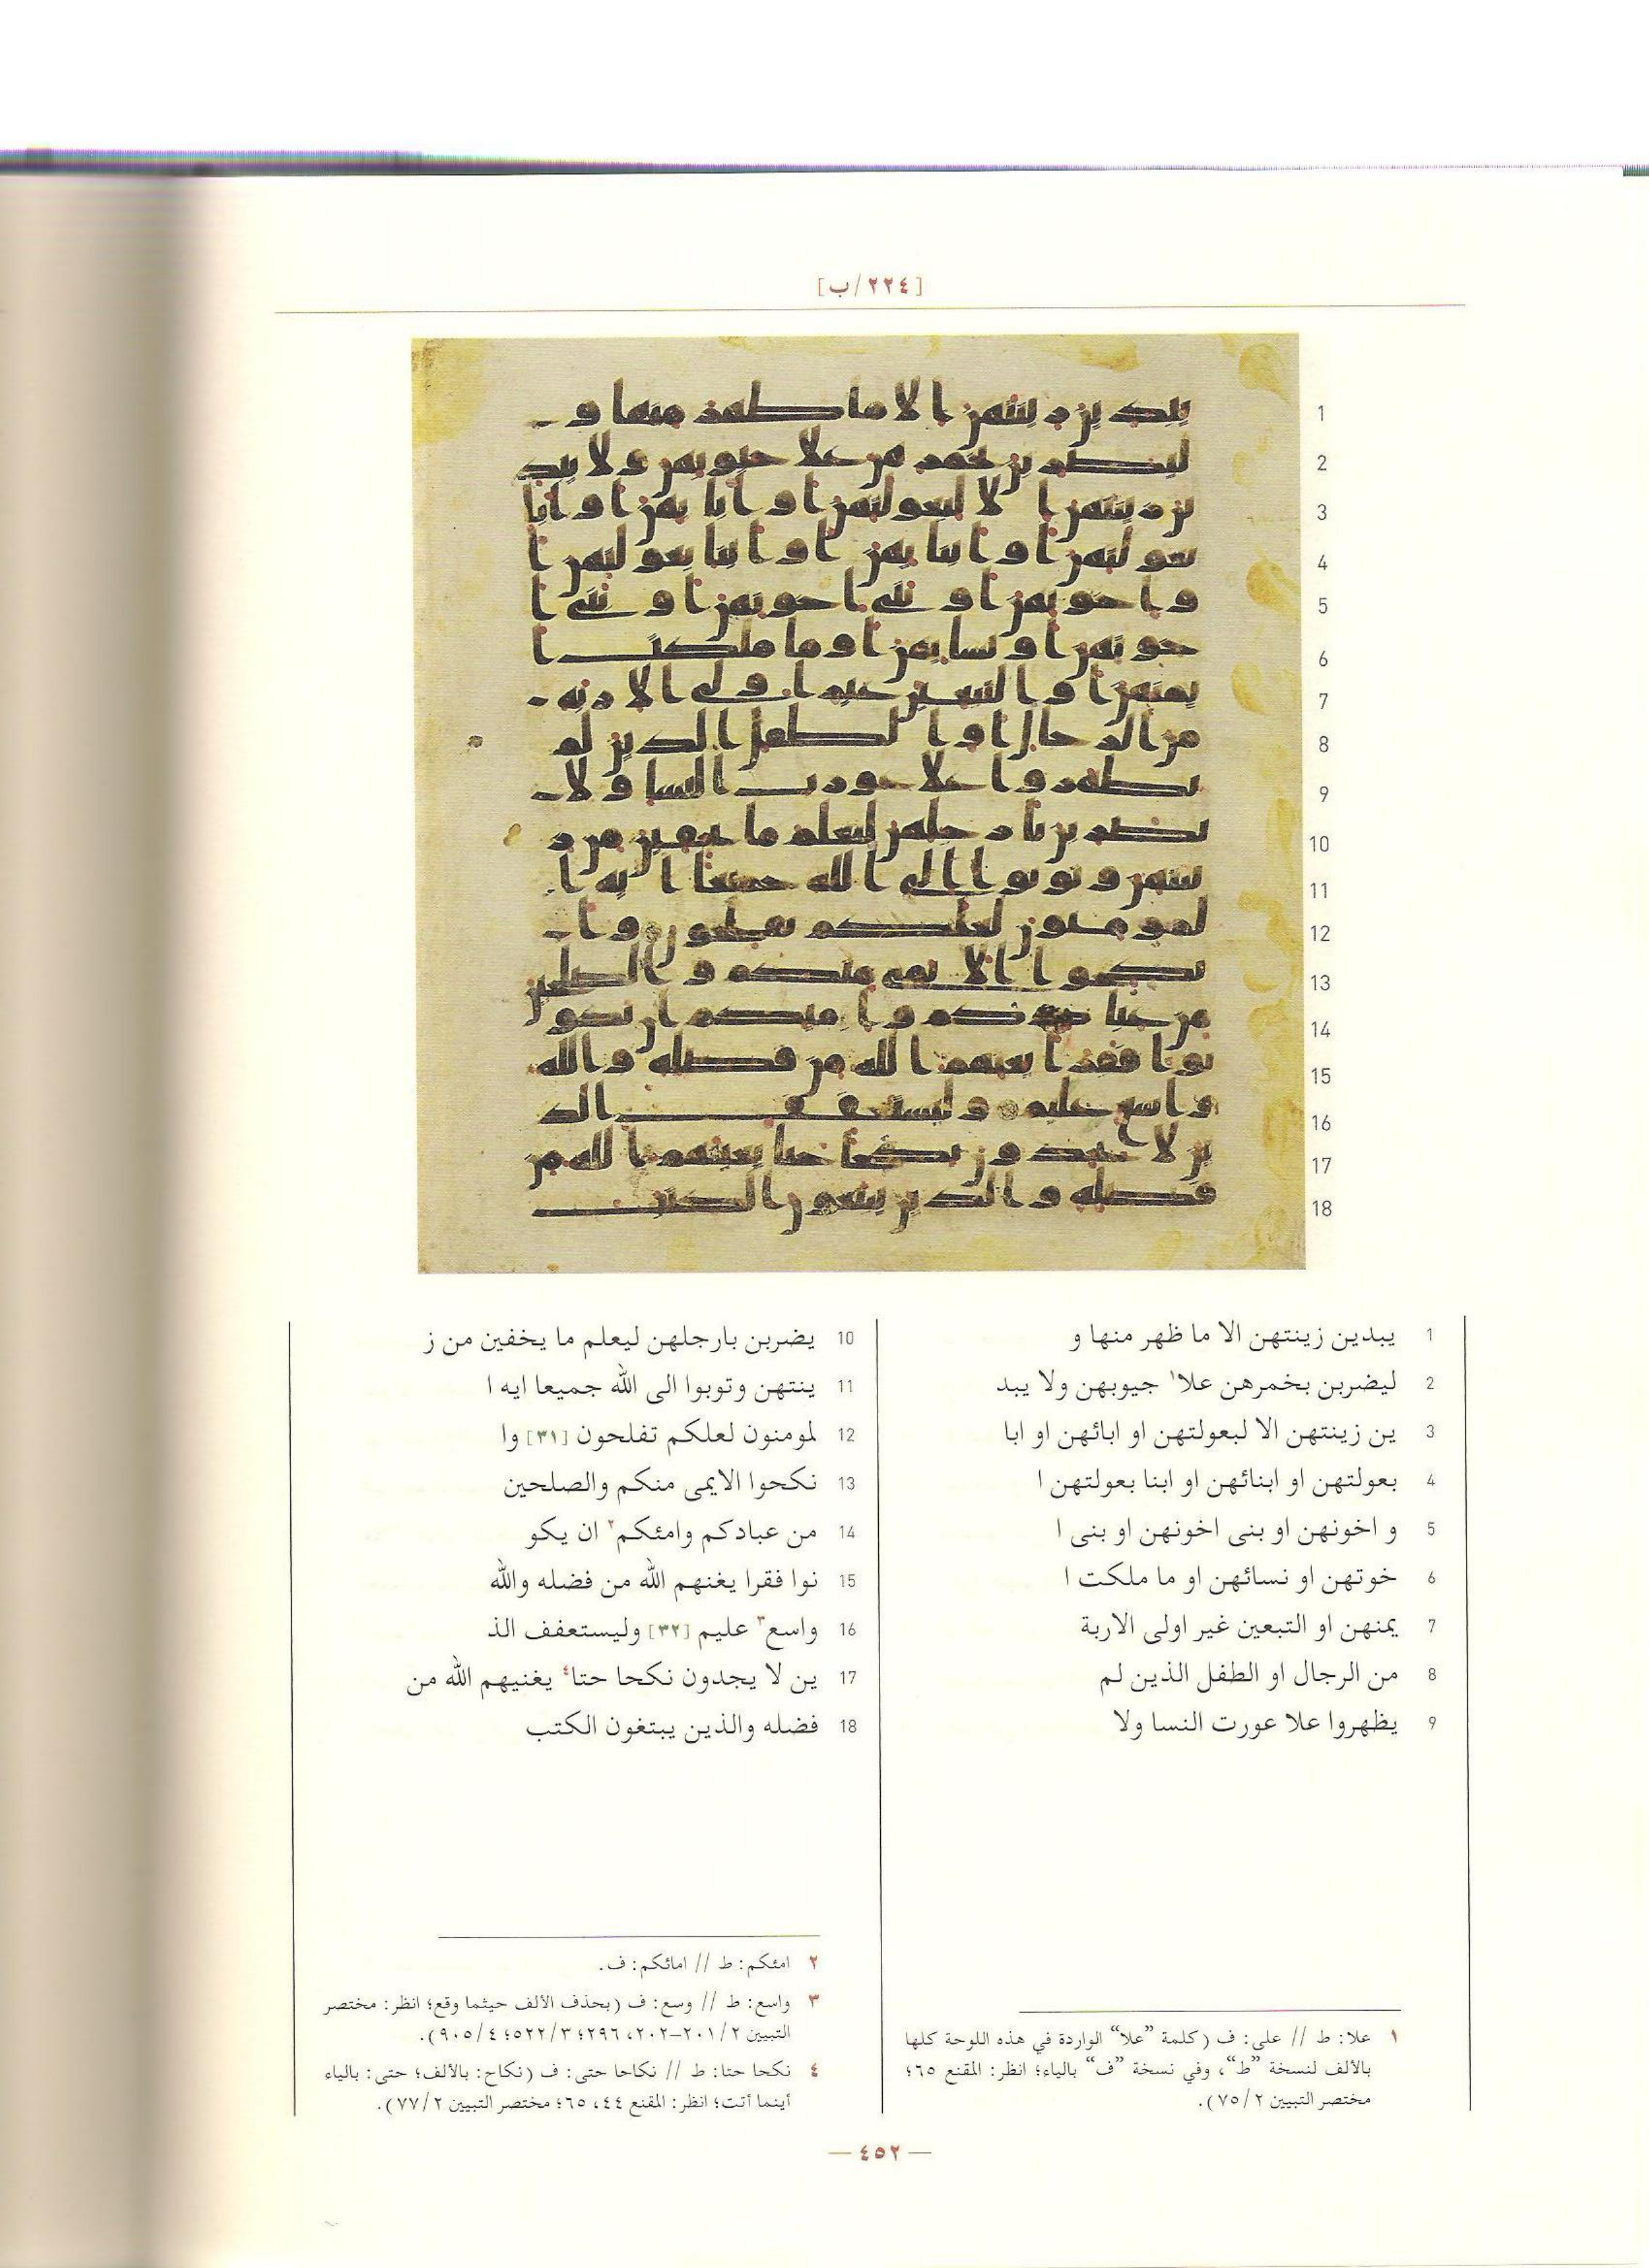 [٢٢٤/ب]
1
2
3
4
5
6
7
8
9
10
11
12
13
14
15
16
17
18
1 يبدين زينتهن الا ما ظهر منها و
2 ليضربن بخمرهن علا١ جيوبهن ولا يبد
3 ين زينتهن الا لبعولتهن او ابائهن او ابا
4 بعولتهن او ابنائهن او ابنا بعولتهن ا
5 و اخونهن او بنى اخونهن او بنى ا
6 خوتهن او نسائهن او ما ملكت ا
7 يمنهن او التبعين غير اولى الاربة
8 من الرجال او الطفل الذين لم
9 يظهروا علا عورت النسا ولا
10 يضربن بارجلهن ليعلم ما يخفين من ز
11 ينتهن وتوبوا الى الله جميعا ايه ا
12 لمومنون لعلكم تفلحون [٣١] وا
13 نكحوا الايمى منكم والصلحين
14 من عبادكم وامئكم٢ ان يكو
15 نوا فقرا يغنهم الله من فضله والله
16 واسع٣ عليم [٣٢] وليستعفف الذ
17 ين لا يجدون نكحا حتا٤ يغنيهم الله من
18 فضله والذين يبتغون الكتب
١ علا: ط // على: ف (كلمة ”علا“ الواردة في هذه اللوحة كلها
بالألف لنسخة ”ط“، وفي نسخة ”ف“ بالياء؛ انظر: المقنع ٦٥؛
مختصر التبيين ٧٥/٢).
٢ امئكم: ط // امائكم: ف.
٣ واسع: ط // وسع: ف (بحذف الألف حيثما وقع؛ انظر: مختصر
التبيين ٢٠١/٢–٢٠٢، ٢٩٦؛ ٥٢٢/٣؛ ٩٠٥/٤).
٤ نكحا حتا: ط // نكاحا حتى: ف (نكاح: بالألف؛ حتى: بالياء
أينما أتت؛ انظر: المقنع ٤٤، ٦٥؛ مختصر التبيين ٧٧/٢).
— ٤٥٢ —